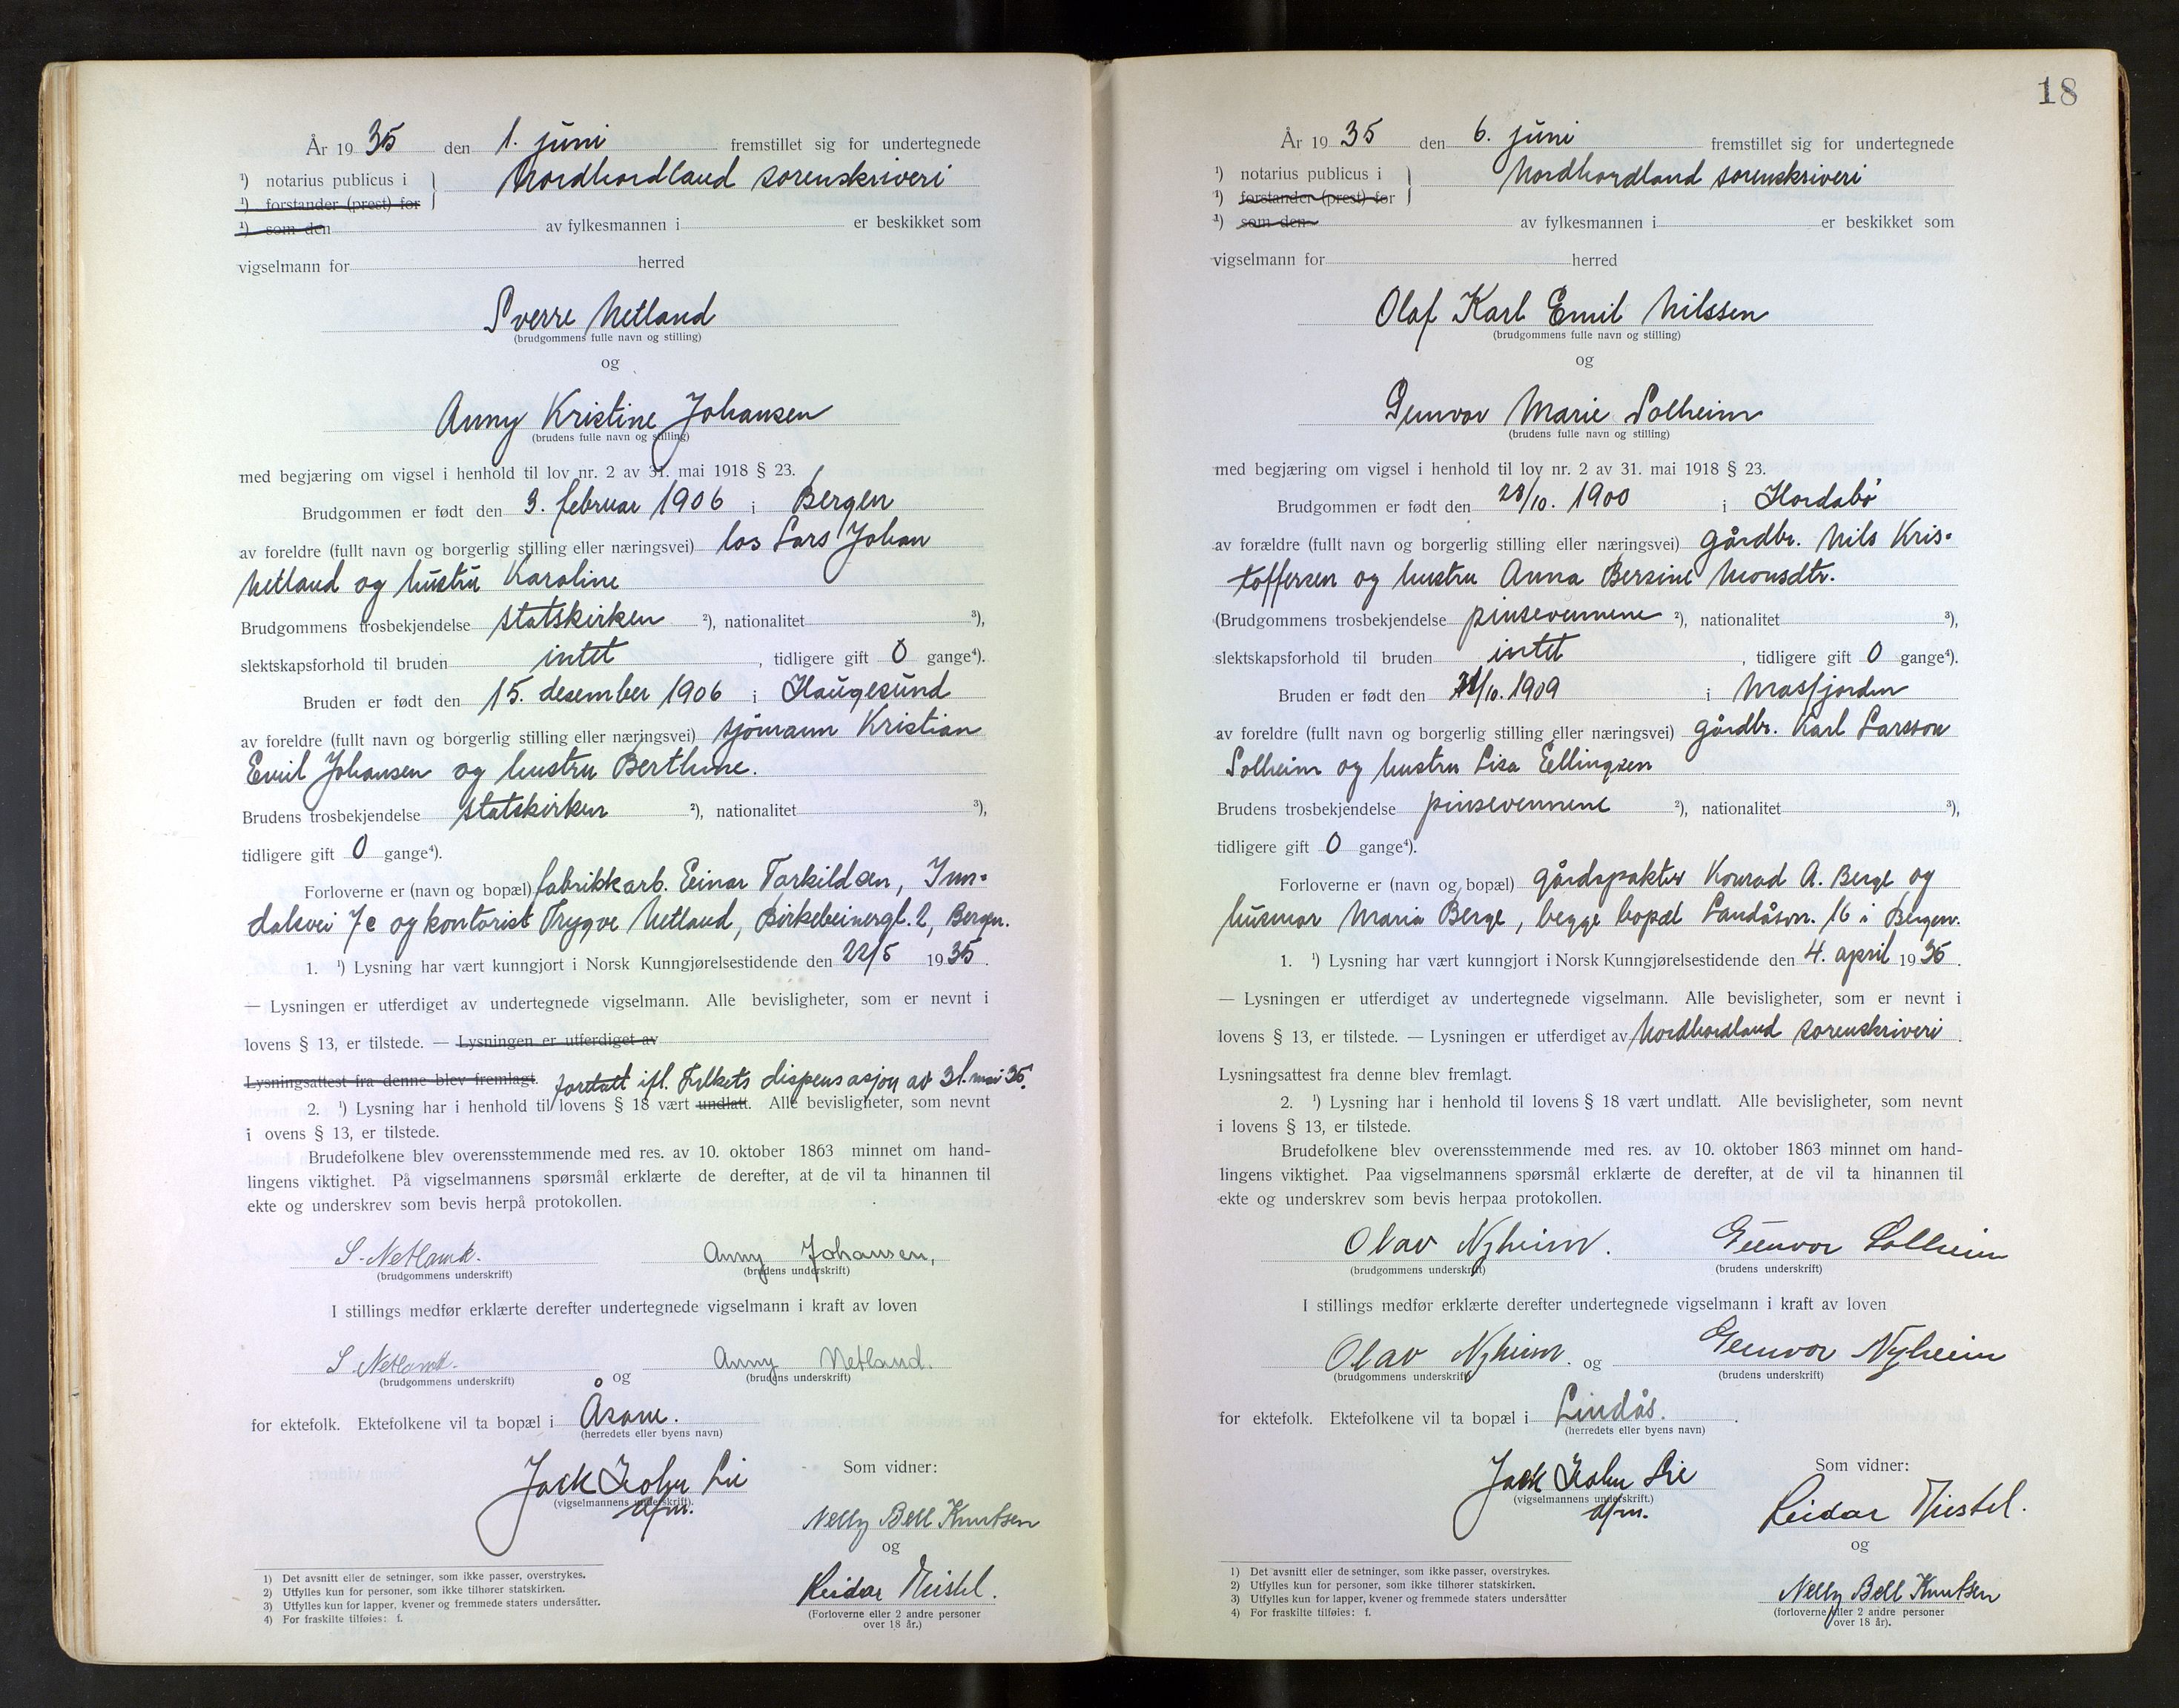 År 1935 den 1. juni fremstillet sig for undertegnede
¹) notarius publicus i Nordhordland sorenskriveri
¹) forstander (prest) for
¹) som den av fylkesmannen i er beskikket som
vigselmann for herred
Sverre Netland
(brudgommens fulle navn og stilling)
og
Anny Kristine Johansen
(brudens fulle navn og stilling)
med begjæring om vigsel i henhold til lov nr. 2 av 31. mai 1918 § 23.
Brudgommen er født den 3. februar 1906 i Bergen
av foreldre (fullt navn og borgerlig stilling eller næringsvei) los Lars Johan
Netland og hustru Karoline
Brudgommens trosbekjendelse statskirken ²), nationalitet ³),
slektskapsforhold til bruden intet, tidligere gift 0 gange⁴).
Bruden er født den 15. desember 1906 i Haugesund
av foreldre (fullt navn og borgerlig stilling eller næringsvei) sjömann Kristian
Emil Johansen og hustru Berthine.
Brudens trosbekjendelse statskirken ²), nationalitet ³),
tidligere gift 0 gange⁴).
Forloverne er (navn og bopæl) fabrikkarb. Einar Torkildsen, Inn-
dalsvei 7c og kontorist Trygve Netland, Birkebeinergt. 2, Bergen.
1. ¹) Lysning har vært kunngjort i Norsk Kunngjørelsestidende den 22/5 1935.
— Lysningen er utferdiget av undertegnede vigselmann. Alle bevisligheter, som er nevnt i
lovens § 13, er tilstede. — Lysningen er utferdiget av
Lysningsattest fra denne blev fremlagt. forttatt ifl. Fylkets dispensasjon av 31. mai 35.
2. ¹) Lysning har i henhold til lovens § 18 vært undlatt. Alle bevisligheter, som nevnt
i ovens § 13, er tilstede.
Brudefolkene blev overensstemmende med res. av 10. oktober 1863 minnet om hand-
lingens viktighet. På vigselmannens spørsmål erklærte de derefter, at de vil ta hinannen til
ekte og underskrev som bevis herpå protokollen.
S. Netland. Anny Johansen,
(brudgommens underskrift) (brudens underskrift)
I stillings medfør erklærte derefter undertegnede vigselmann i kraft av loven
S. Netland. og Anny Netland.
(brudgommens underskrift) (brudens underskrift)
for ektefolk. Ektefolkene vil ta bopæl i Åsane.
(herredets eller byens navn)
Jack Lie
(vigselmannens underskrift).
d/m.
Som vidner:
Nelly Bell Knutsen
og
Reidar
(Forloverne eller 2 andre personer
over 18 år.)
1) Det avsnitt eller de setninger, som ikke passer, overstrykes.
2) Utfylles kun for personer, som ikke tilhører statskirken.
3) Utfylles kun for lapper, kvener og fremmede staters undersåtter.
4) For fraskilte tilføies: f.
18
År 1935 den 6. juni fremstillet sig for undertegnede
¹) notarius publicus i Nordhordland sorenskriveri
¹) forstander (prest) for
¹) som den av fylkesmannen i er beskikket som
vigselmann for herred
Olaf Karl Emil Nilssen
(brudgommens fulle navn og stilling)
og
Gunvor Marie Solheim
(brudens fulle navn og stilling)
med begjæring om vigsel i henhold til lov nr. 2 av 31. mai 1918 § 23.
Brudgommen er født den 28/10. 1900 i Hordabö
av forældre (fullt navn og borgerlig stilling eller næringsvei) gårdbr. Nils Kris-
toffersen og hustru Anna Bersine Monsdtr.
(Brudgommens trosbekjendelse pinsevennene ²), nationalitet ³),
slektskapsforhold til bruden intet, tidligere gift 0 gange⁴).
Bruden er født den /10. 1909 i Masfjorden
av foreldre (fullt navn og borgerlig stilling eller næringsvei) gårdbr. Karl Larsson
Solheim og hustru Lisa Ellingsen
Brudens trosbekjendelse pinsevennene ²), nationalitet ³),
tidligere gift 0 gange⁴).
Forloverne er (navn og bopæl) gårdspakter Konrad A. Berge og
husmor Maria Berge, begge bopæl Landåsvn. 16 i Bergen.
1. ¹) Lysning har vært kunngjort i Norsk Kunngjørelsestidende den 4. april 1935.
— Lysningen er utferdiget av undertegnede vigselmann. Alle bevisligheter, som er nevnt i
lovens § 13, er tilstede. — Lysningen er utferdiget av Nordhordland sorenskriveri.
Lysningsattest fra denne blev fremlagt.
2. ¹) Lysning har i henhold til lovens § 18 vært undlatt. Alle bevisligheter, som nevnt
i lovens § 13, er tilstede.
Brudefolkene blev overensstemmende med res. av 10. oktober 1863 minnet om hand-
lingens viktighet. Paa vigselmannens spørsmål erklærte de derefter, at de vil ta hinannen til
ekte og underskrev som bevis herpaa protokollen.
Olav Nyheim. Gunvor Solheim
(brudgommens underskrift) (brudens underskrift)
I stillings medfør erklærte derefter undertegnede vigselmann i kraft av loven
Olav Nyheim. og Gunvor Nyheim
(brudgommens underskrift) (brudens underskrift)
for ektefolk. Ektefolkene vil ta bopæl i Lindås.
(herredets eller byens navn)
Jack Lie
(vigselmannens underskrift.)
d/m.
Som vidner:
Reidar
og
Nelly Bell Knutsen
(forloverne eller 2 andre personer
over 18 år).
1) Det avsnitt eller de setninger, som ikke passer, overstrykes.
2) Utfylles kun for personer, som ikke tilhører statskirken.
3) Utfylles kun for lapper, kvener og fremmede staters undersåtter
4) For fraskilte tilføies: f.